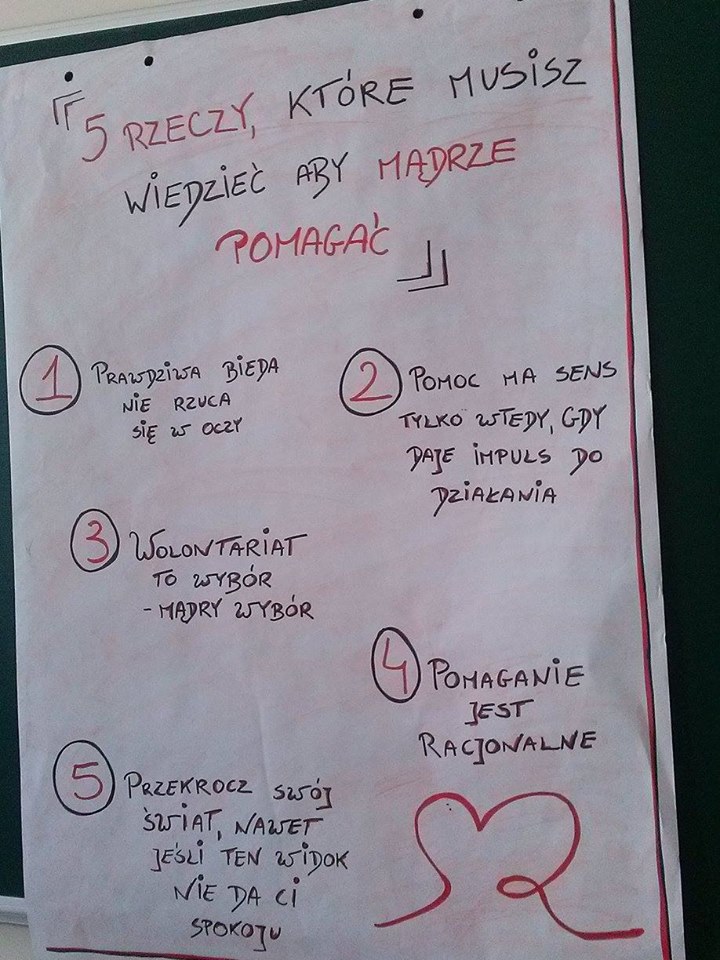 『5 RZECZY, KTÓRE MUSISZ
WIEDZIEĆ ABY MĄDRZE
POMAGAĆ』
1 PRAWDZIWA BIEDA
NIE RZUCA
SIĘ W OCZY
2 POMOC MA SENS
TYLKO WTEDY, GDY
DAJE IMPULS DO
DZIAŁANIA
3 WOLONTARIAT
TO WYBÓR
- MĄDRY WYBÓR
4 POMAGANIE
JEST
RACJONALNE
5 PRZEKROCZ SWÓJ
ŚWIAT, NAWET
JEŚLI TEN WIDOK
NIE DA CI
SPOKOJU